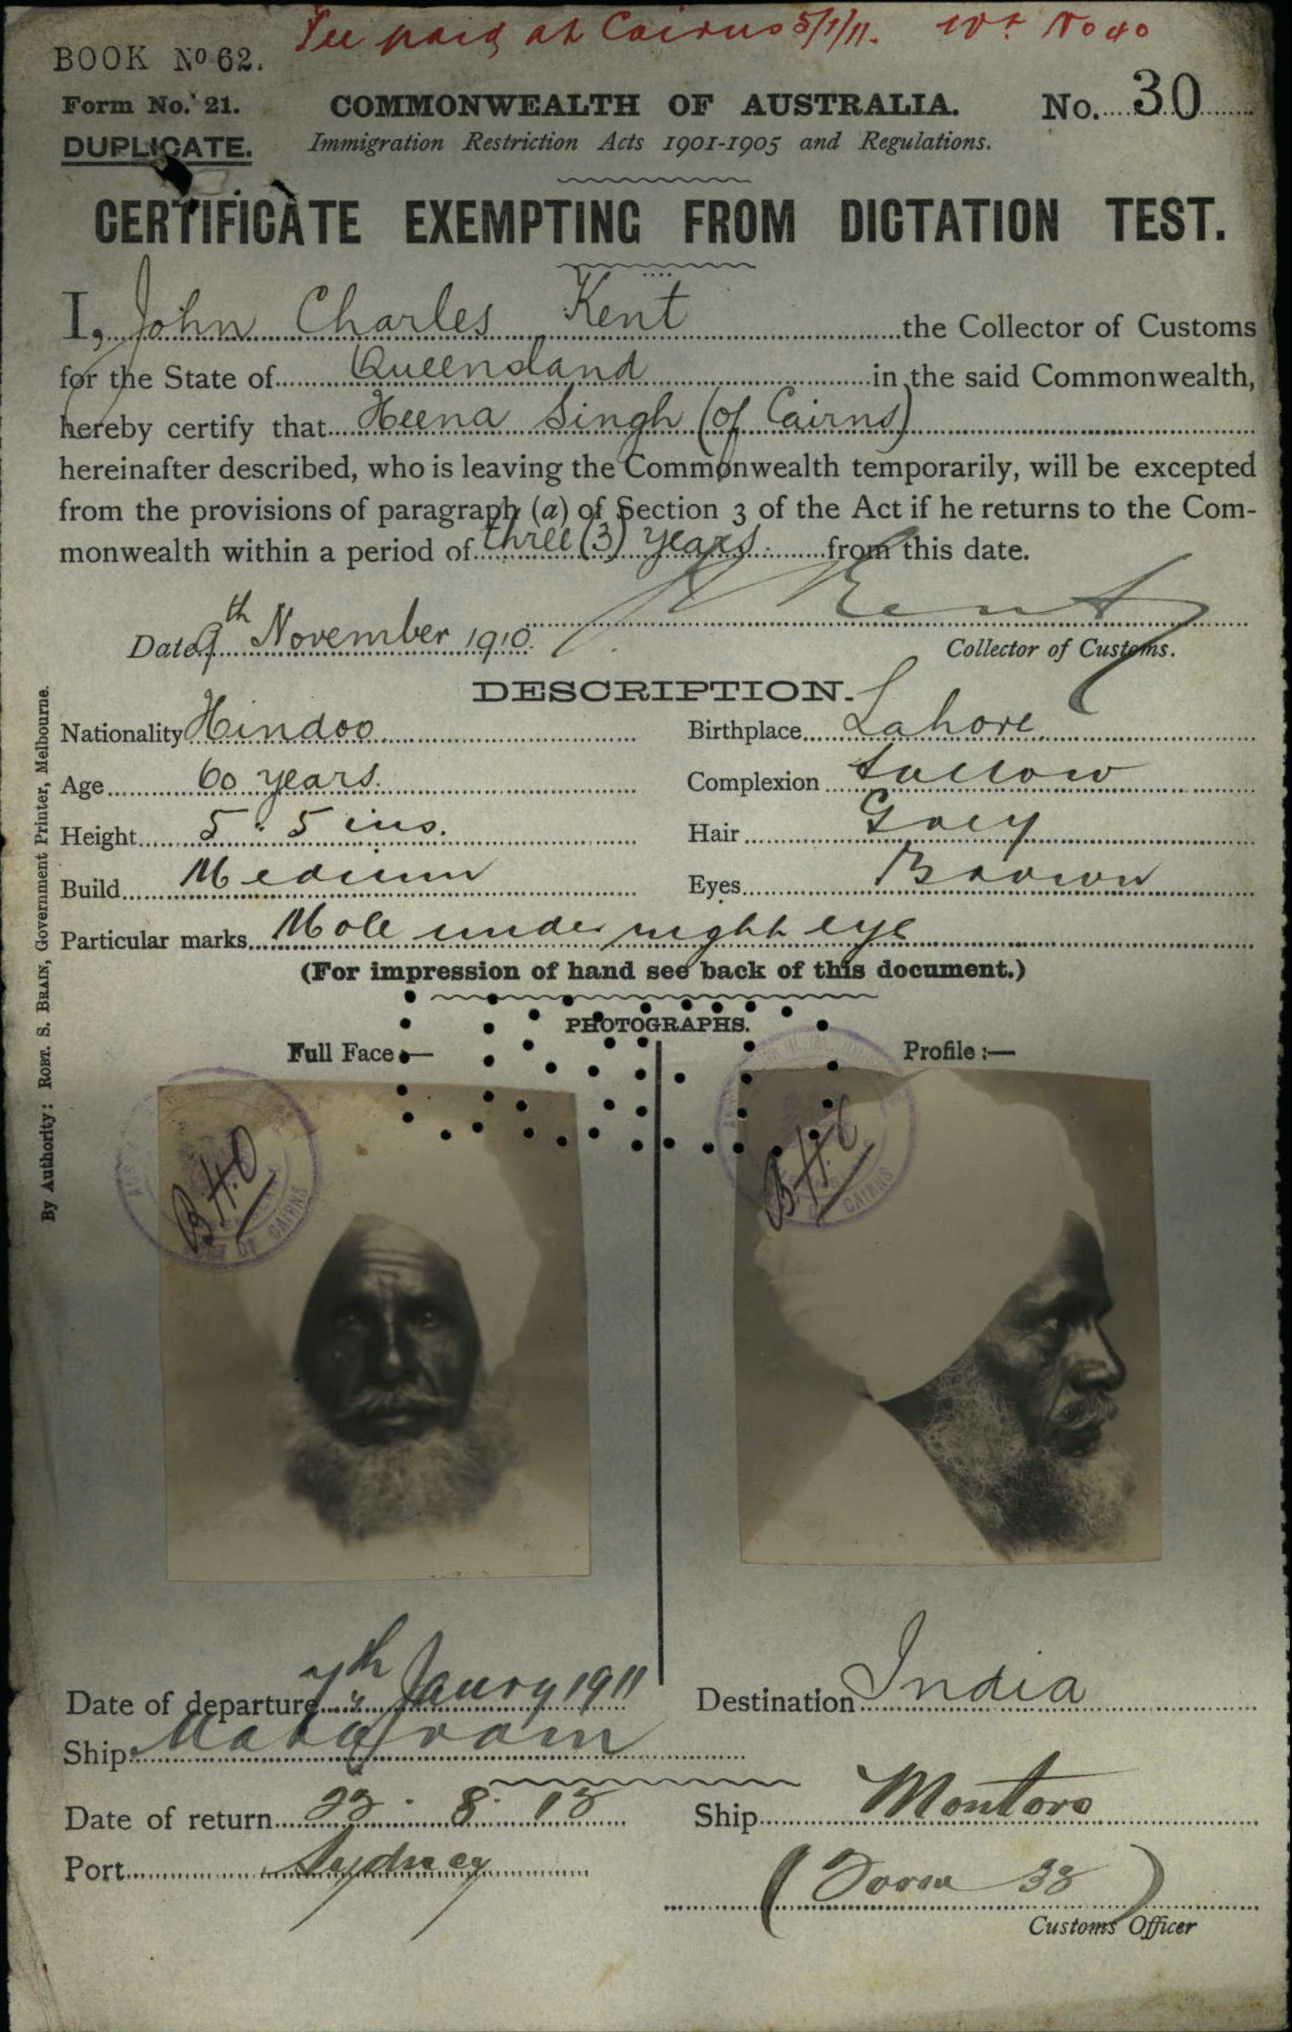 Fee paid at Cairns 5/1/11. No 40
BOOK No 62.
Form No. 21.
COMMONWEALTH OF AUSTRALIA.
No. 30
DUPLICATE.
Immigration Restriction Acts 1901-1905 and Regulations.
CERTIFICATE EXEMPTING FROM DICTATION TEST.
I, John Charles Kent the Collector of Customs
for the State of Queensland in the said Commonwealth,
hereby certify that Heena Singh (of Cairns)
hereinafter described, who is leaving the Commonwealth temporarily, will be excepted
from the provisions of paragraph (a) of Section 3 of the Act if he returns to the Com-
monwealth within a period of three (3) years from this date.
Kent
Date 9th November 1910.
Collector of Customs.
DESCRIPTION.
Nationality Hindoo
Birthplace Lahore
Age 60 years.
Complexion Sallow
Height 5. 5 ins.
Hair Grey
Build Medium
Eyes Brown
Particular marks Mole under right eye
(For impression of hand see back of this document.)
PHOTOGRAPHS.
Full Face :—
Profile :—
CAIRNS
CAIRNS
Date of departure 7th Janry 1911
Destination India
Ship Mataram
Date of return
Ship Montoro
Port Sydney
(Form 32)
Customs Officer
By Authority: ROBT. S. BRAIN, Government Printer, Melbourne.